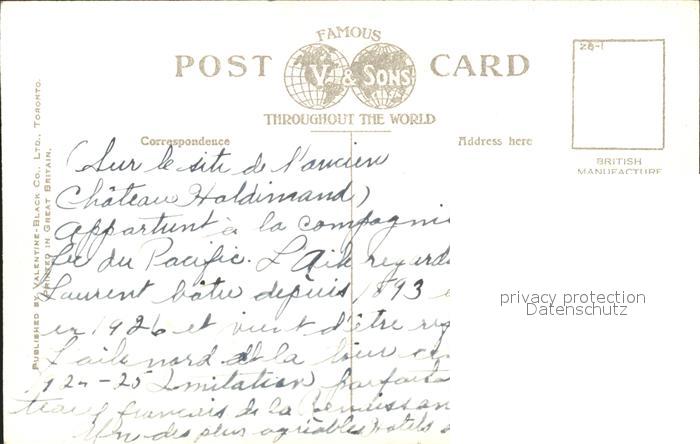 FAMOUS
POST CARD
V. & SONS
THROUGHOUT THE WORLD
28-1
BRITISH
MANUFACTURE
Correspondence
Address here
PUBLISHED BY VALENTINE-BLACK CO., LTD., TORONTO.
PRINTED IN GREAT BRITAIN.
(Sur le site de l'ancien
Château Haldimand)
appartient à la compagnie
du Pacific. L'Aile regard
Laurent bâtie depuis 1893
en 1926 et vient d'être
L'aile nord et la tour
1924-25 Imitation parfaite
français de la Renaissan
Un des plus agréables hotels
privacy protection
Datenschutz